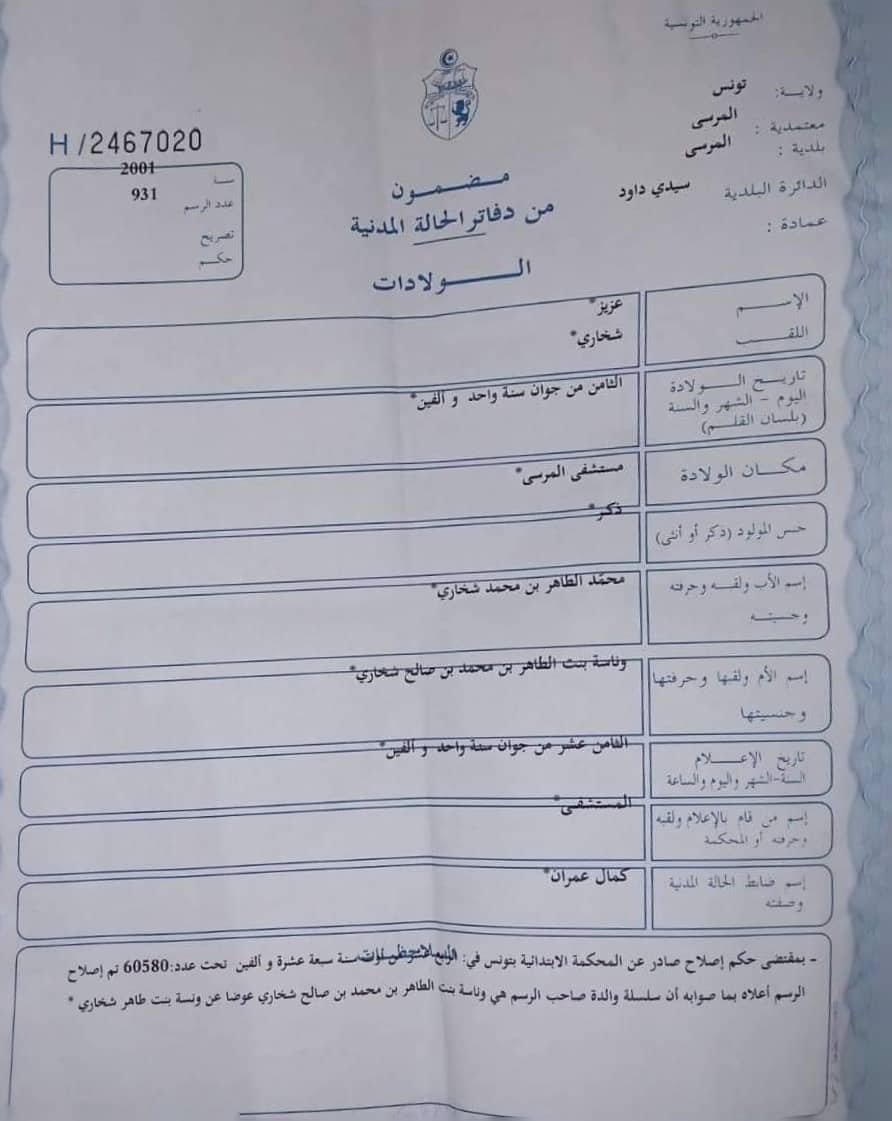 الجمهورية التونسية
ولاية: تونس
معتمدية : المرسى
بلدية : المرسى
الدائرة البلدية سيدي داود
عمادة :
H/2467020
سنة 2001
عدد الرسم 931
تصريح
حكم
مضمون
من دفاتر الحالة المدنية
الولادات
الإسم عزيز*
اللقب شخاري*
تاريخ الولادة
اليوم - الشهر والسنة
(بلسان القلم)
الثامن من جوان سنة واحد و ألفين*
مكان الولادة مستشفى المرسى*
جنس المولود (ذكر أو أنثى) ذكر*
إسم الأب ولقبه وحرفته
وجنسيته
محمّد الطاهر بن محمد شخاري*
إسم الأم ولقبها وحرفتها
وجنسيتها
وناسة بنت الطاهر بن محمد بن صالح شخاري*
تاريخ الإعلام
السنة-الشهر واليوم والساعة
الثامن عشر من جوان سنة واحد و ألفين*
إسم من قام بالإعلام ولقبه
وحرفته أو المحكمة
المستشفى*
إسم ضابط الحالة المدنية
وصفته
كمال عمران*
- بمقتضى حكم إصلاح صادر عن المحكمة الابتدائية بتونس في: سنة سبعة عشرة و ألفين تحت عدد:60580 تم إصلاح
الرسم أعلاه بما صوابه أن سلسلة والدة صاحب الرسم هي وناسة بنت الطاهر بن محمد بن صالح شخاري عوضا عن ونسة بنت طاهر شخاري *